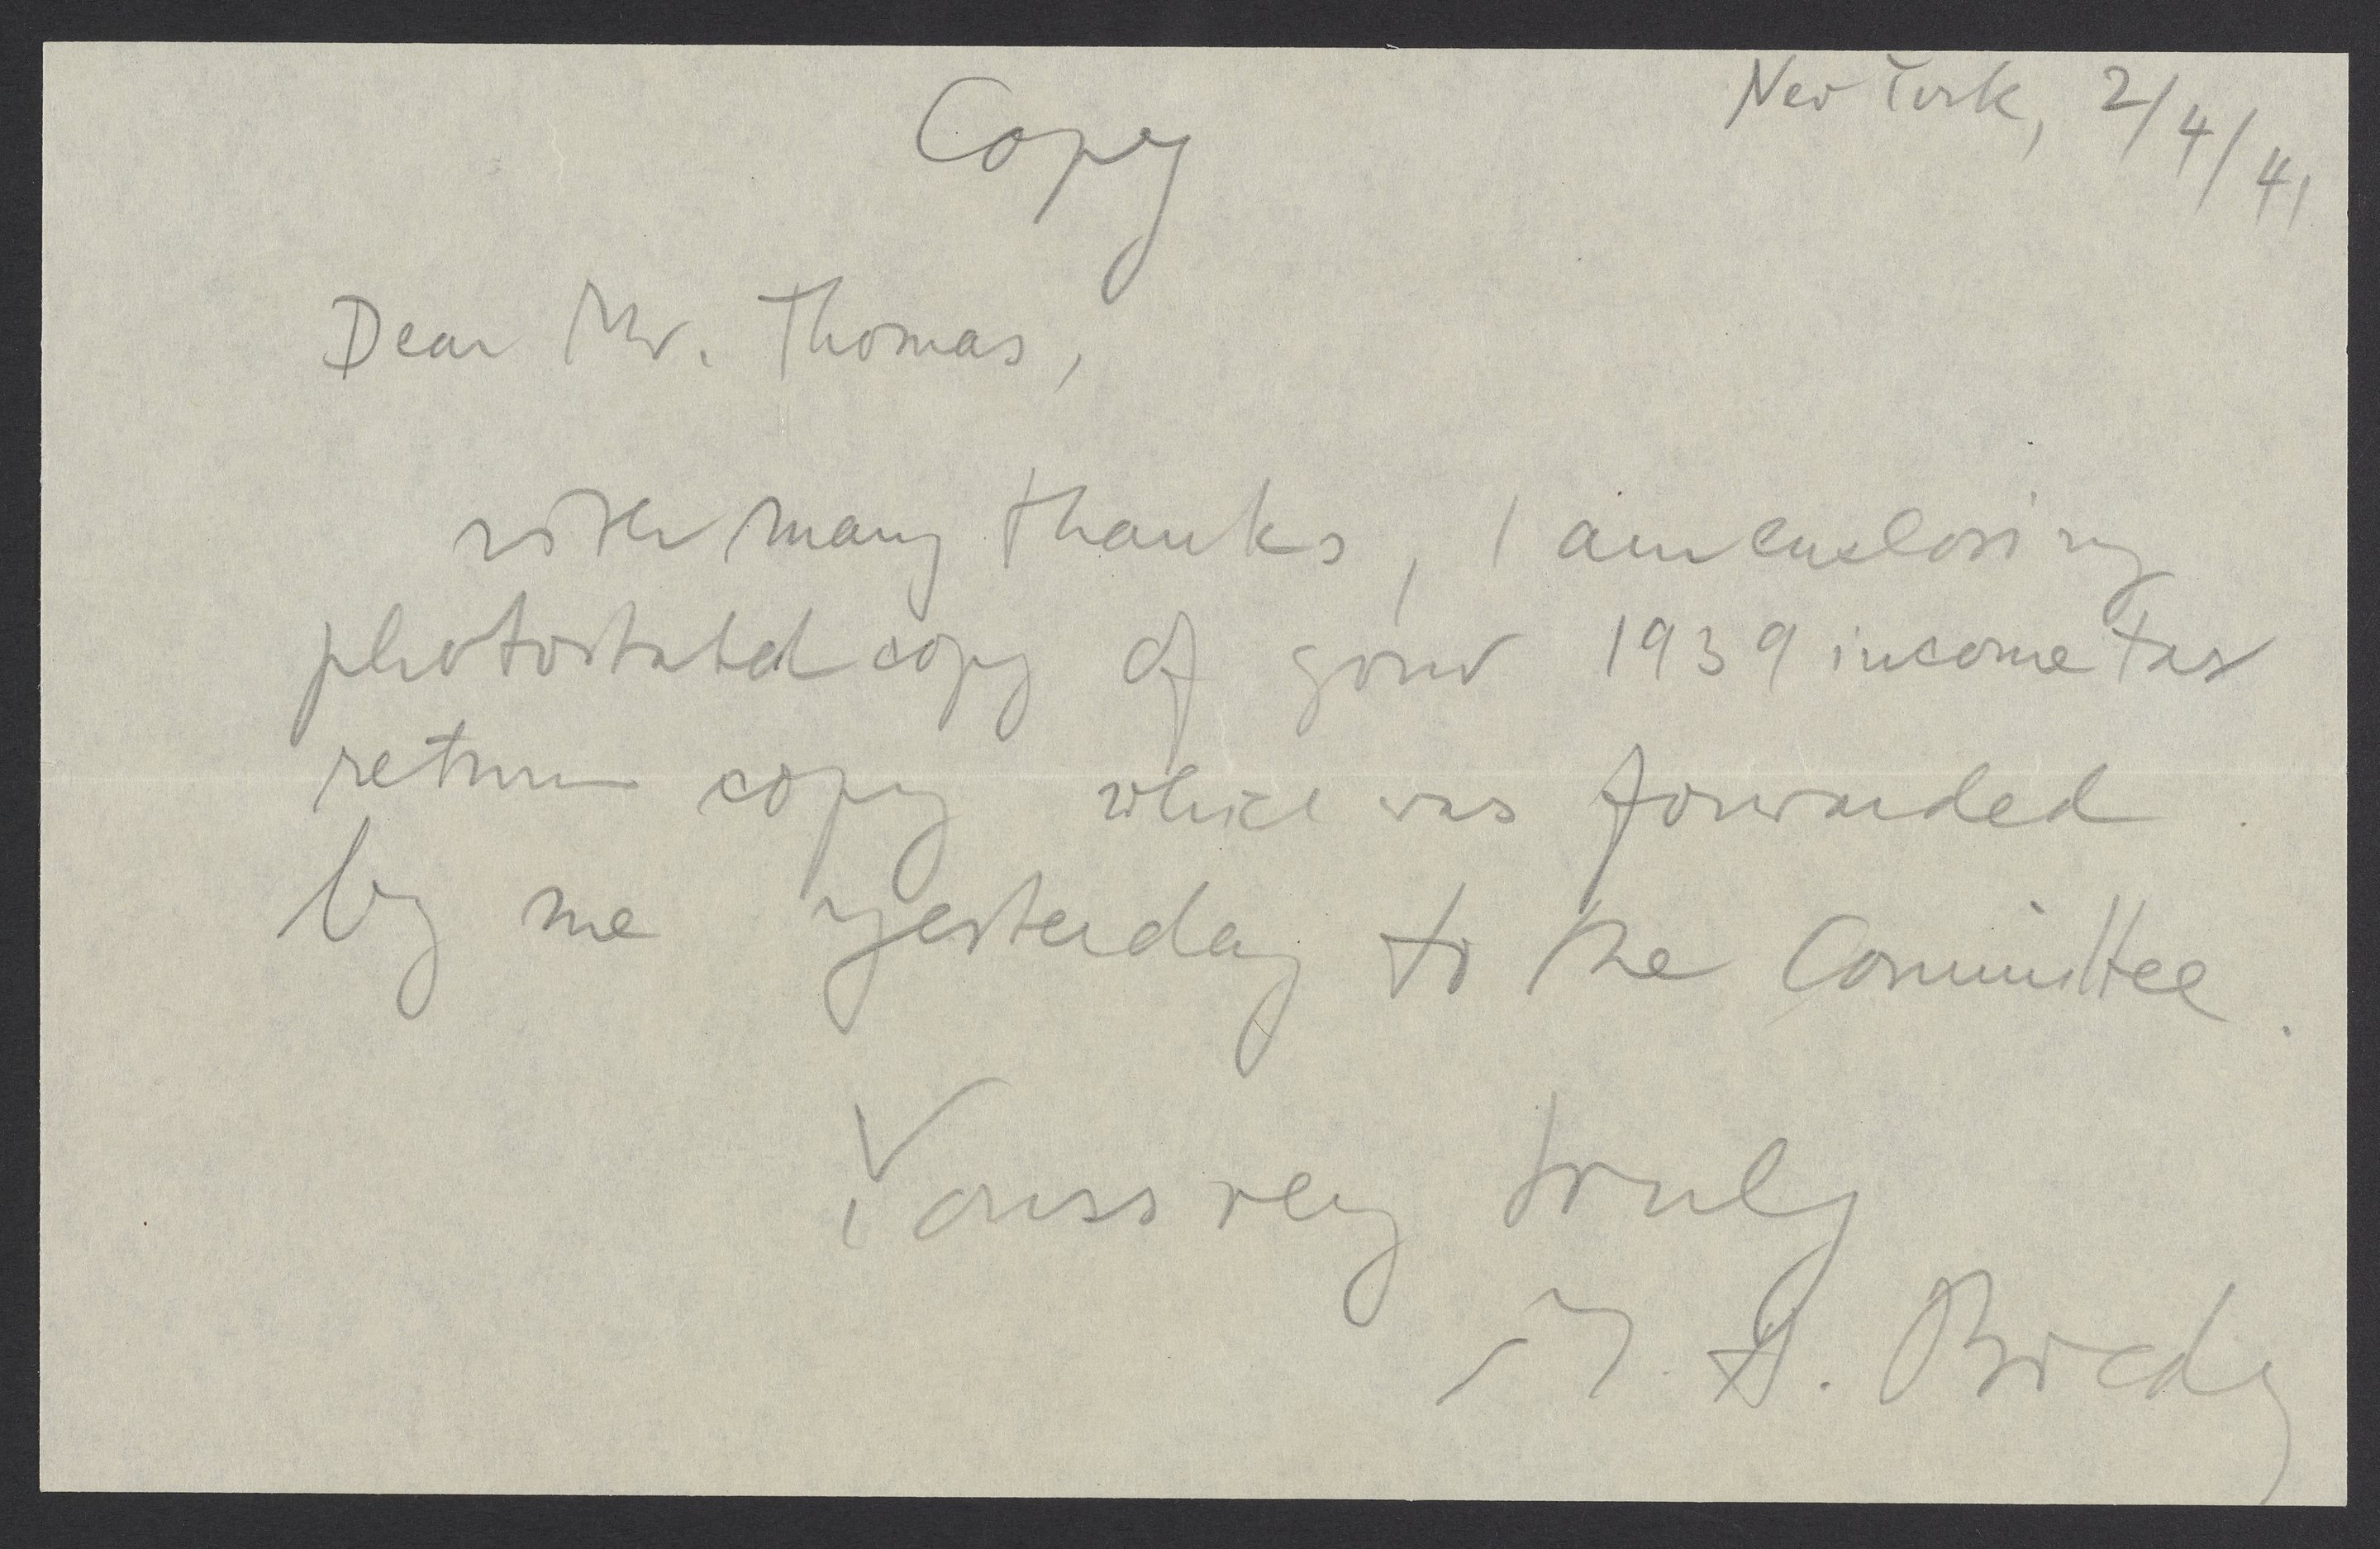 Copy
New York, 2/4/41
Dear Mr. Thomas,
with many thanks, I am enclosing
photostated copy of your 1939 income tax
return copy which was forwarded
by me yesterday to the Committee.
Yours very truly